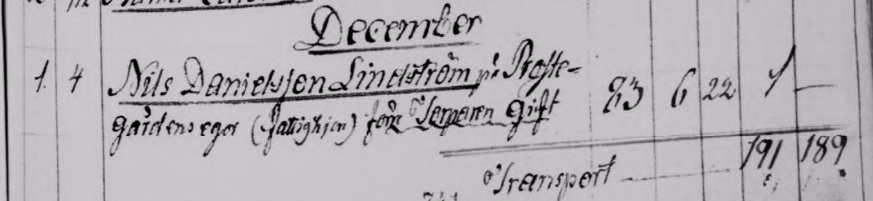 December
1. 4 Nils Danielsson Lindström på Proste-
gårdens egor (fattighjon) förr Gift 83 6 22 1 —
Transport 191 189